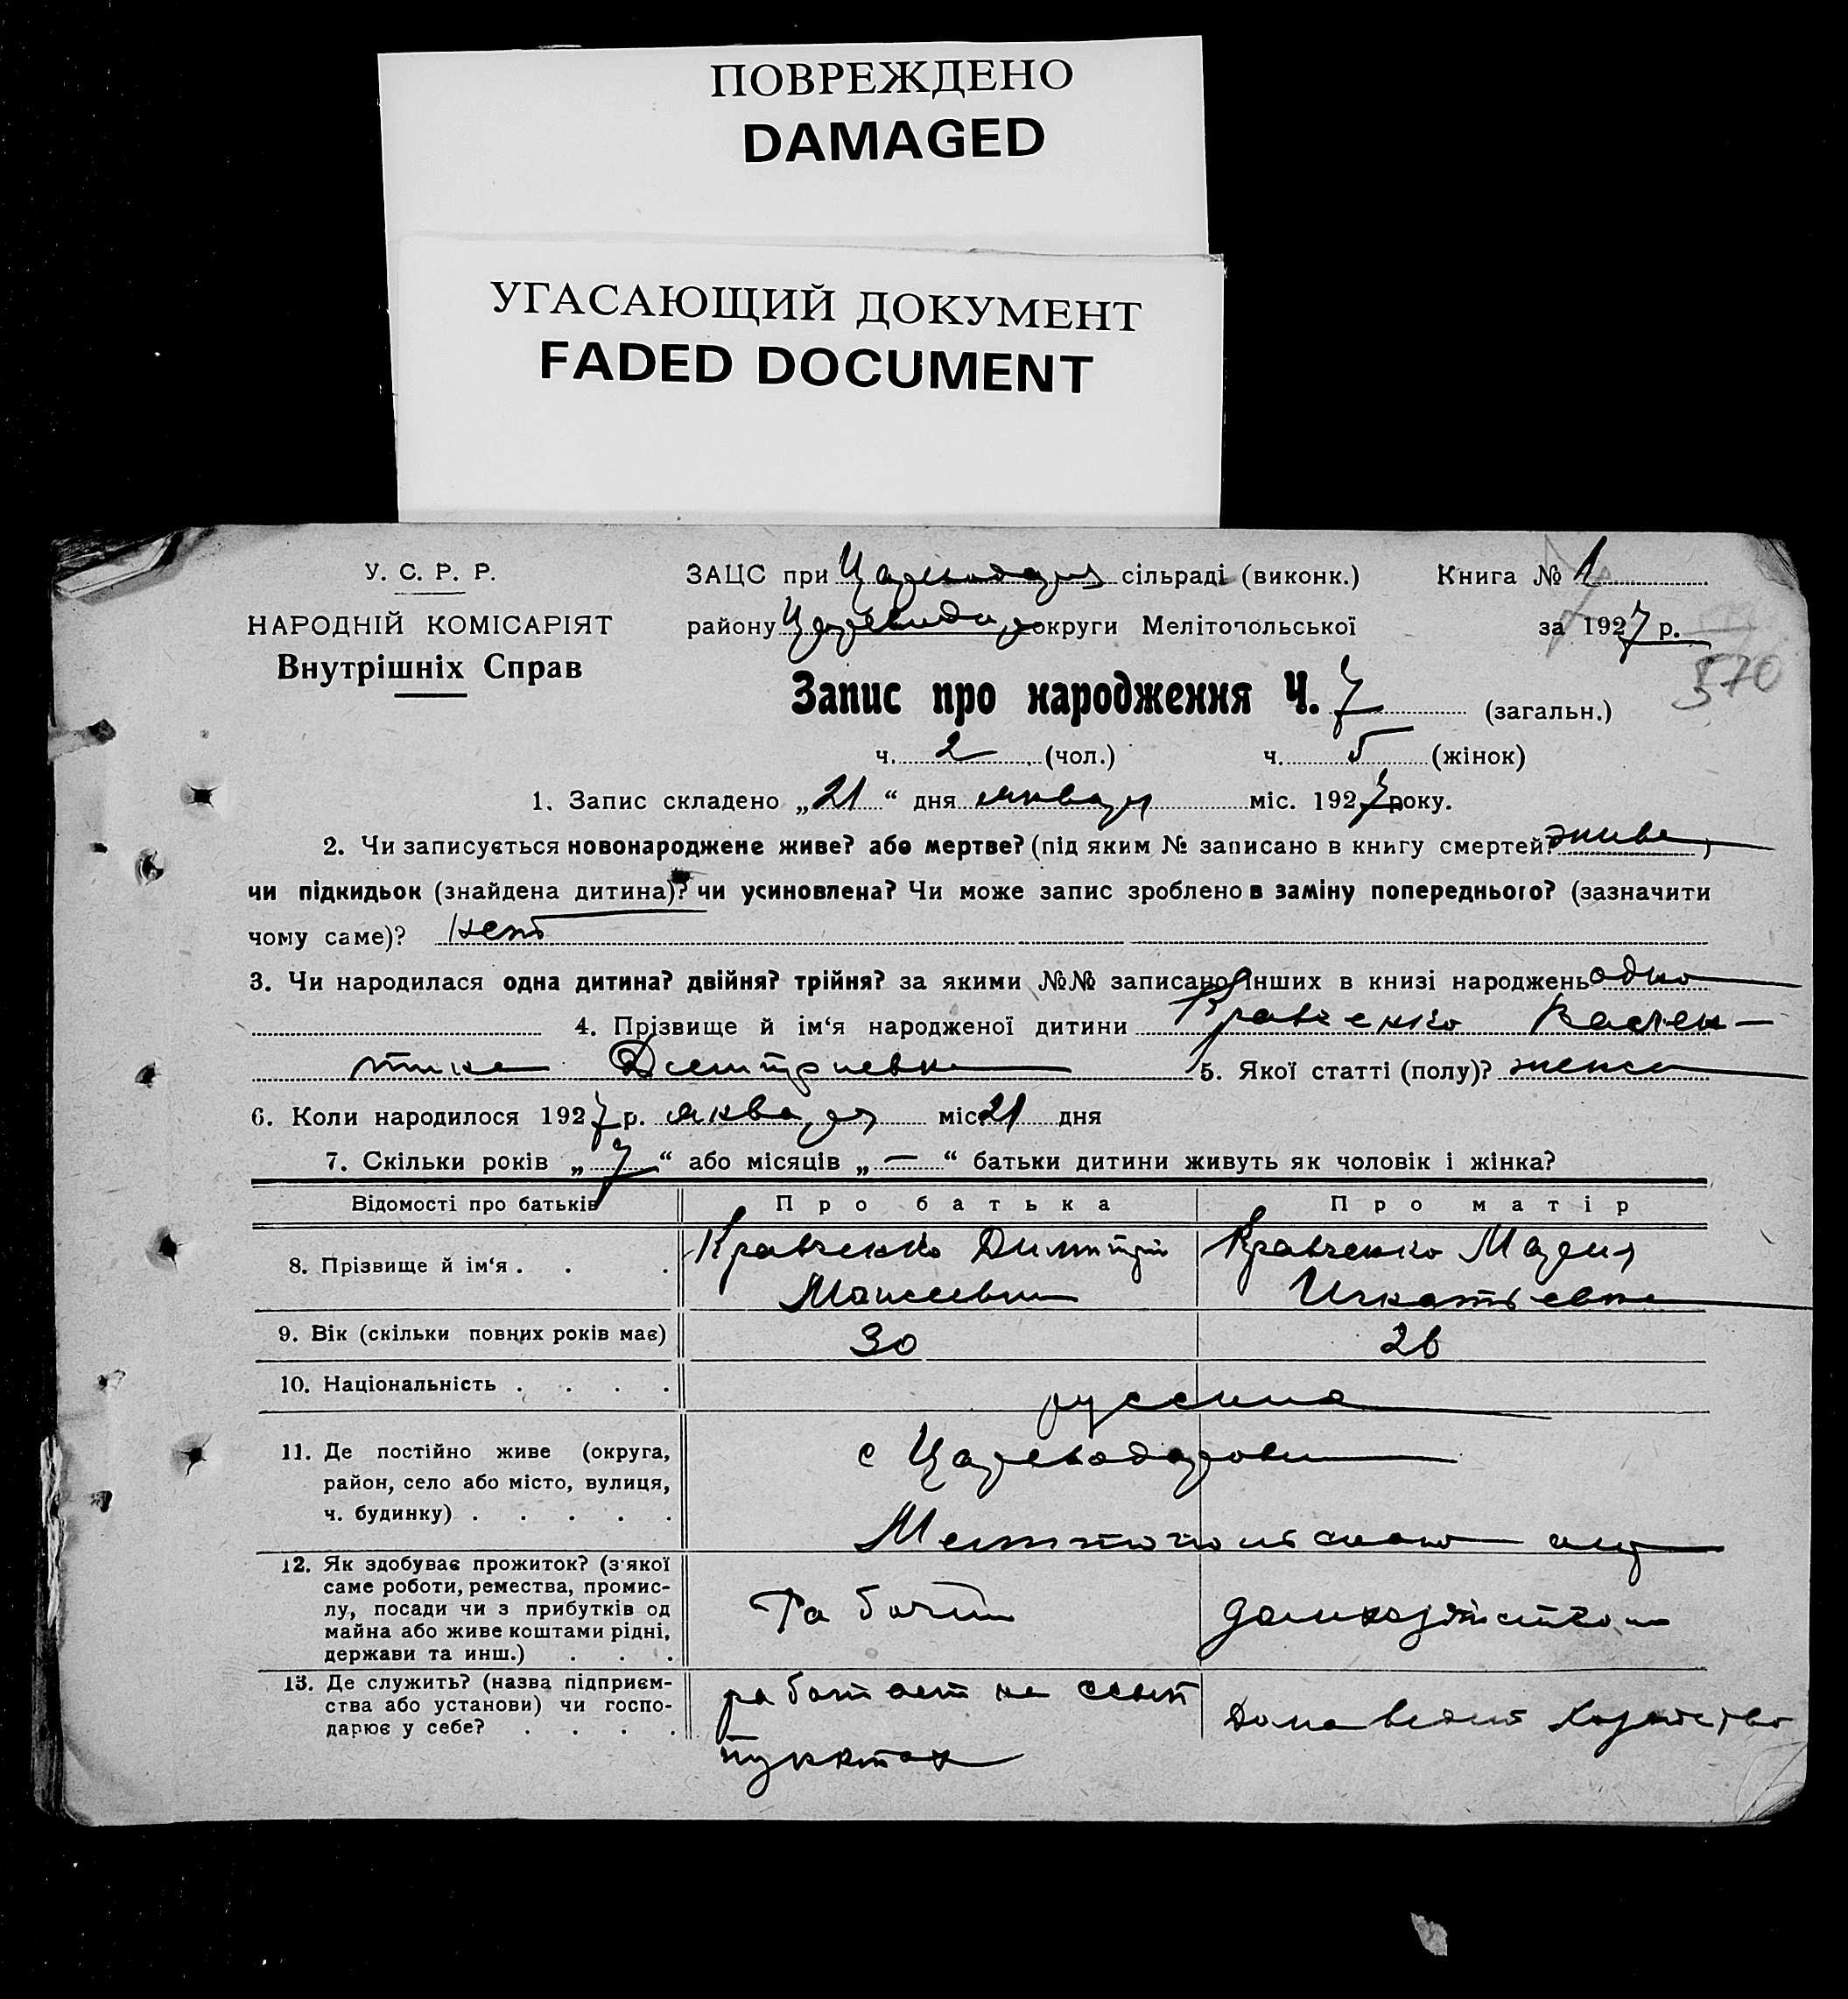 ПОВРЕЖДЕНО
DAMAGED
УГАСАЮЩИЙ ДОКУМЕНТ
FADED DOCUMENT
У. С. Р. Р.
НАРОДНІЙ КОМІСАРІЯТ
Внутрішніх Справ
ЗАЦС при сільраді (виконк.) Книга № 1
району округи Мелітопольської за 1927 р.
570
Запис про народження Ч. 7 (загальн.)
ч. 2 (чол.) ч. 5 (жінок)
1. Запис складено „21“ дня января міс. 1927 року.
2. Чи записується новонароджене живе? або мертве? (під яким № записано в книгу смертей? живе)
чи підкидьок (знайдена дитина)? чи усиновлена? Чи може запис зроблено в заміну попереднього? (зазначити
чому саме)? нет
3. Чи народилася одна дитина? двійня? трійня? за якими №№ записано інших в книзі народжень одно
4. Прізвище й ім‘я народженої дитини Кравченко Вален-
тина Дмитриевна 5. Якої статті (полу)? женск
6. Коли народилося 1927 р. января міс. 21 дня
7. Скільки років „7“ або місяців „—“ батьки дитини живуть як чоловік і жінка?
Відомості про батьків Про батька Про матір
8. Прізвище й ім‘я . . . Кравченко Димитрий Кравченко Мария
Моисеевич Игнатьевна
9. Вік (скільки повних років має) 30 26
10. Національність . . . . русские
11. Де постійно живе (округа, с Цареводаровка
район, село або місто, вулиця,
ч. будинку) . . . . . Мелитопольского
12. Як здобуває прожиток? (з якої
саме роботи, ремества, промис-
лу, посади чи з прибутків од Рабочий домхозяйством
майна або живе коштами рідні,
держави та инш.) . . .
13. Де служить? (назва підприєм- работает на ссып
ства або установи) чи госпо- Дома ведет хозяйство
дарює у себе? . . . . пунктах